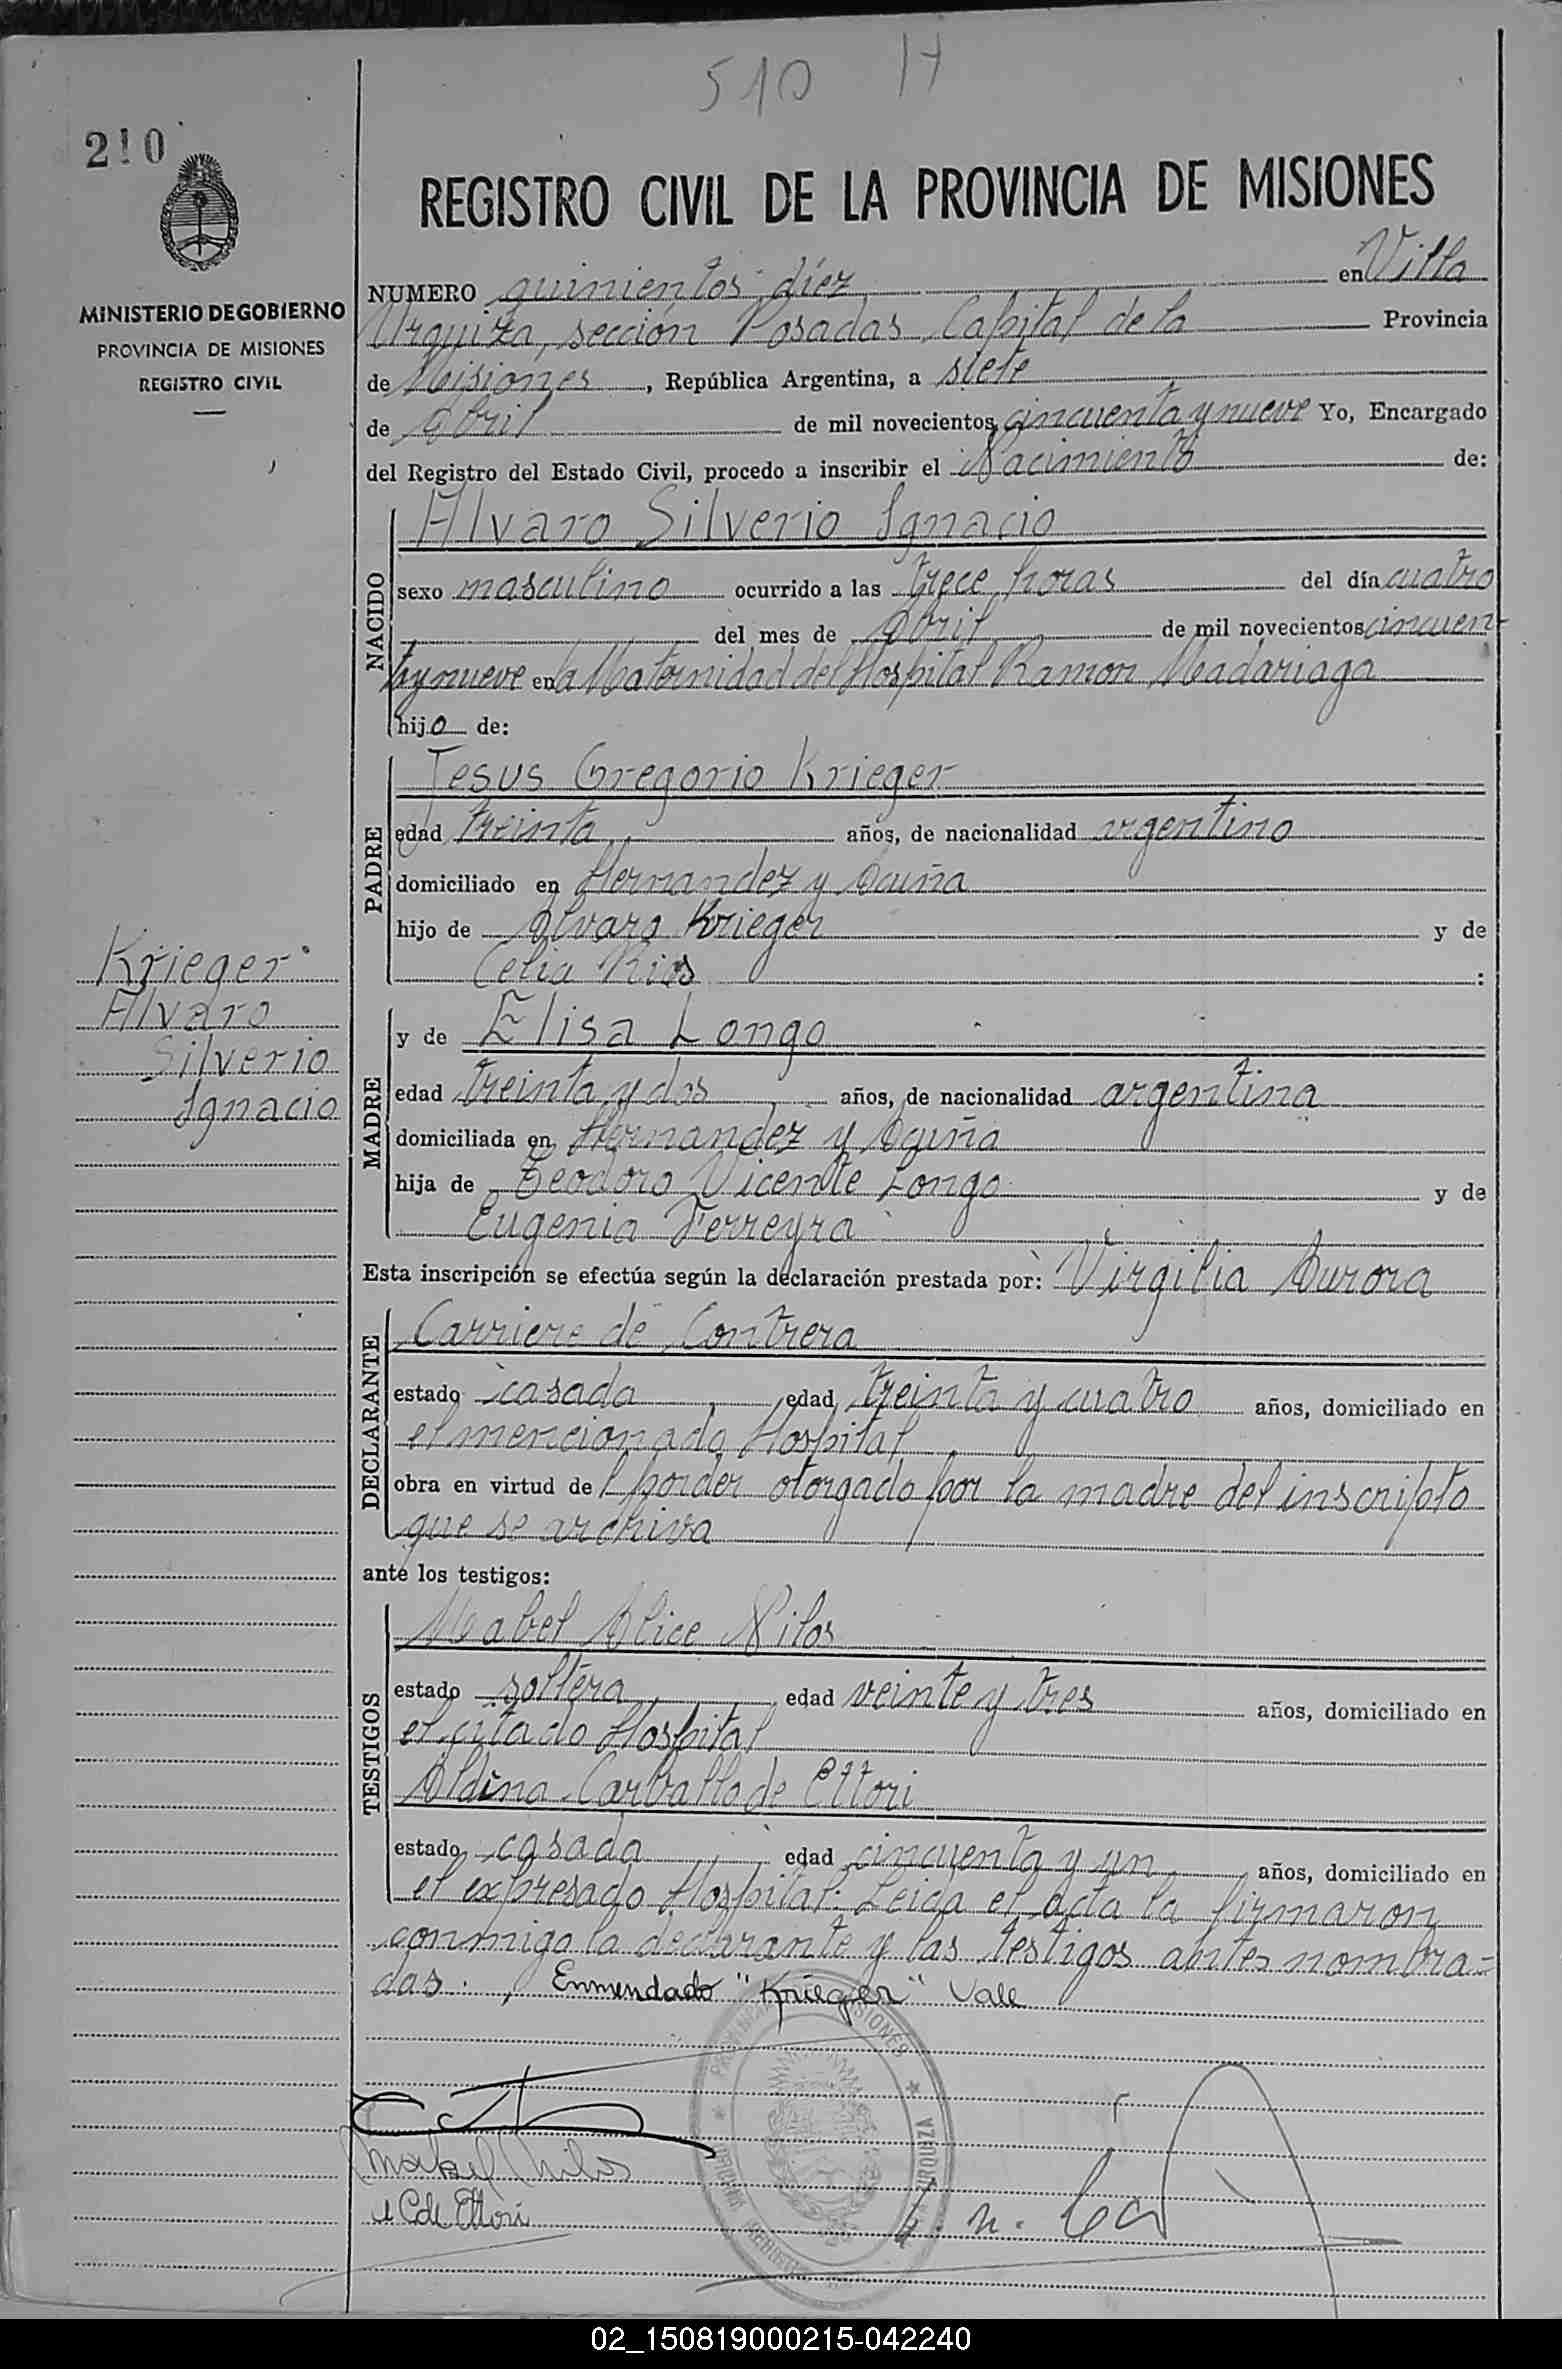 510 H
210
REGISTRO CIVIL DE LA PROVINCIA DE MISIONES
MINISTERIO DE GOBIERNO
PROVINCIA DE MISIONES
REGISTRO CIVIL
NUMERO quinientos diez en Villa
Urquiza, sección Posadas, Capital de la Provincia
de Misiones, República Argentina, a siete
de Abril de mil novecientos cincuenta y nueve Yo, Encargado
del Registro del Estado Civil, procedo a inscribir el Nacimiento de:
NACIDO
Alvaro Silverio Ignacio
sexo masculino ocurrido a las trece horas del día cuatro
del mes de Abril de mil novecientos cincuen-
ta y nueve en la Maternidad del Hospital Ramon Madariaga
hijo de:
PADRE
Jesus Gregorio Krieger
edad treinta años, de nacionalidad argentino
domiciliado en Hernandez y Acuña
hijo de Alvaro Krieger y de
Celia Rios :
Krieger
Alvaro
Silverio
Ignacio
MADRE
y de Elisa Longo
edad treinta y dos años, de nacionalidad argentina
domiciliada en Hernandez y Acuña
hija de Teodoro Vicente Longo y de
Eugenia Ferreyra
Esta inscripción se efectúa según la declaración prestada por: Virgilia Aurora
DECLARANTE
Carriere de Contrera
estado casada edad treinta y cuatro años, domiciliado en
el mencionado Hospital
obra en virtud del poder otorgado por la madre del inscripto
que se archiva
ante los testigos:
TESTIGOS
Mabel Alice Nilos
estado soltera edad veinte y tres años, domiciliado en
el citado Hospital
Aldina Carballo de Ettori
estado casada edad cincuenta y un años, domiciliado en
el expresado Hospital. Leida el acta la firmaron
conmigo la declarante y las testigos antes nombra-
das. Enmendado "Krieger" Vale
PROVINCIA MISIONES
URQUIZA
Mabel Nilos
C de Ettori
02_150819000215-042240